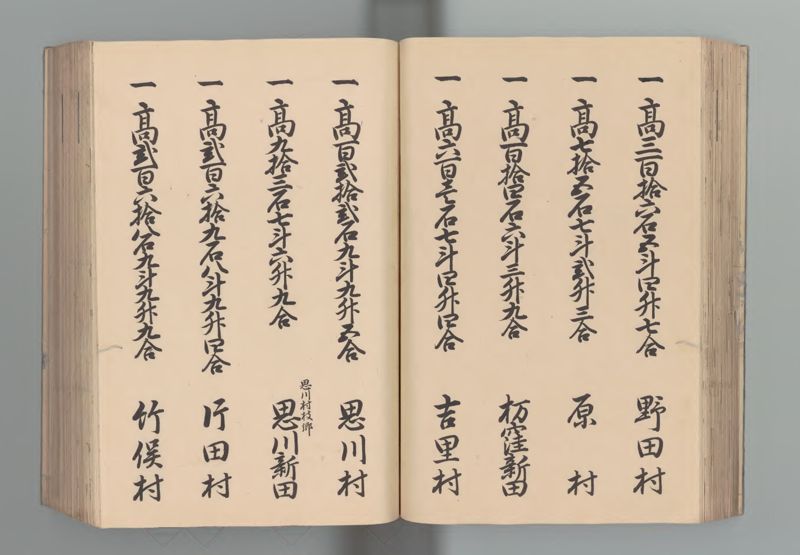 一高三百拾六石五斗四升七合 野田村
一高七拾五石七斗弐升三合 原村
一高百拾四石六斗三升九合 枋窪新田
一高六百壱石七斗四升四合 吉里村
一高百弐拾弐石九斗九升五合 思川村
思川村枝郷
一高九拾三石七斗六升九合 思川新田
一高弐百六拾九石八斗九升四合 片田村
一高弐百六拾八石九斗九升九合 竹俣村